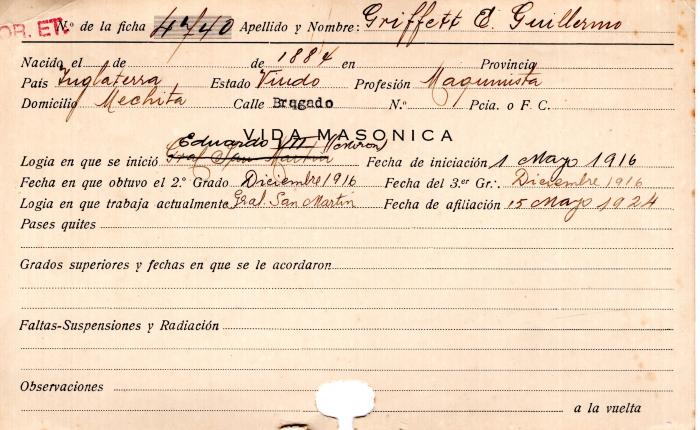 OR. ET.
N.º de la ficha 4740 Apellido y Nombre: Griffett E. Guillermo
Nacido el de de 1884 en Provincia
País Inglaterra Estado Viudo Profesión Maquinista
Domicilio Mechita Calle Bragado N.º Pcia. o F. C.
VIDA MASONICA
Eduardo VII
Logia en que se inició Gral San Martin Fecha de iniciación 1 Mayo 1916
Fecha en que obtuvo el 2.º Grado Diciembre 1916 Fecha del 3.er Gr.: Diciembre 1916
Logia en que trabaja actualmente Gral. San Martin Fecha de afiliación 15 Mayo 1924
Pases quites
Grados superiores y fechas en que se le acordaron
Faltas-Suspensiones y Radiación
Observaciones
a la vuelta